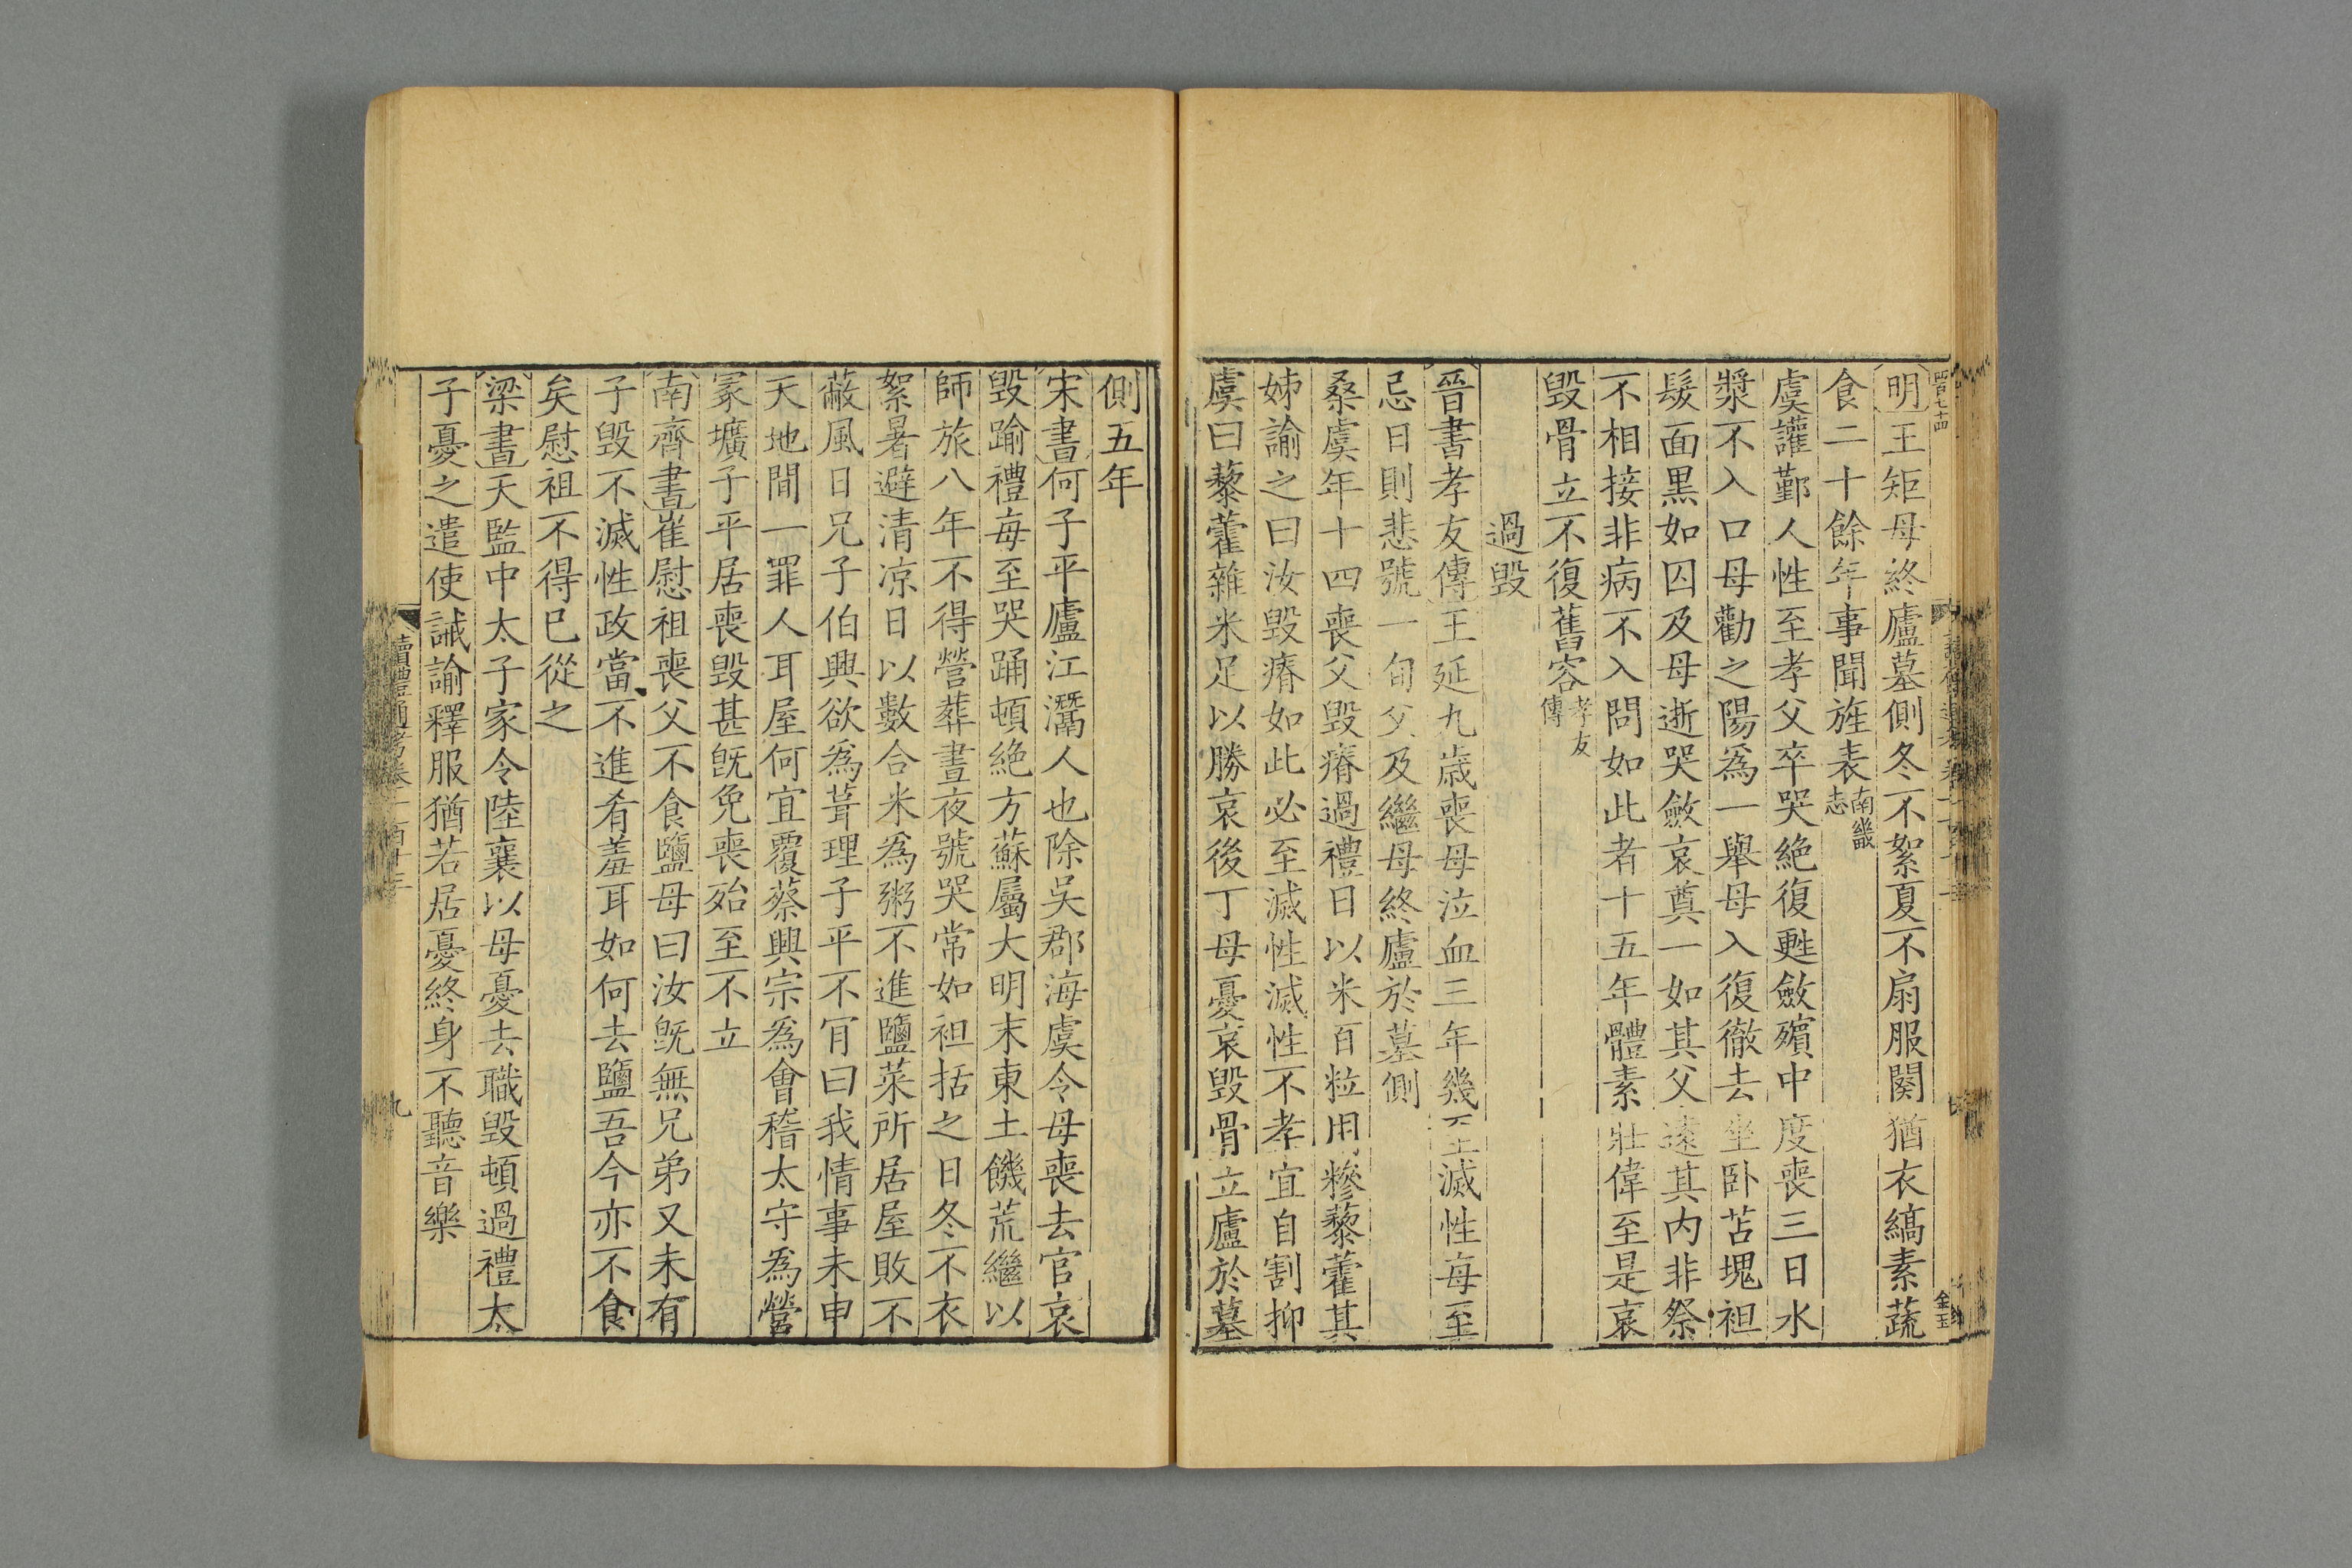 明王矩母終廬墓側冬不絮夏不扇服闋猶衣縞素蔬
食二十餘年事聞旌表南畿志
虞讙鄞人性至孝父卒哭絶復甦斂殯中度喪三日水
漿不入口母勸之陽爲一舉母入復徹去坐卧苫塊袒
髮面黒如囚及母逝哭斂哀奠一如其父遠其内非祭
不相接非病不入問如此者十五年體素壯偉至是哀
毁骨立不復舊容孝友傳
過毁
晉書孝友傳王延九歳喪母泣血三年幾至滅性每至
忌日則悲號一旬父及繼母終廬於墓側
桑虞年十四喪父毁瘠過禮日以米百粒用糝藜藿其
姊諭之曰汝毁瘠如此必至滅性滅性不孝宜自割抑
虞曰藜藿雜米足以勝哀後丁母憂哀毁骨立廬於墓
側五年
宋書何子平廬江灊人也除吳郡海虞令母喪去官哀
毁踰禮每至哭踊頓絶方蘇屬大明末東土饑荒繼以
師旅八年不得營葬晝夜號哭常如袒括之日冬不衣
絮暑避清凉日以數合米爲粥不進鹽菜所居屋敗不
蔽風日兄子伯興欲爲葺理子平不肎曰我情事未申
天地間一罪人耳屋何宜覆蔡興宗爲會稽太守爲營
冢壙子平居喪毁甚旣免喪殆至不立
南齊書崔慰祖喪父不食鹽母曰汝旣無兄弟又未有
子毁不滅性政當不進肴羞耳如何去鹽吾今亦不食
矣慰祖不得已從之
梁書天監中太子家令陸襄以母憂去職毁頓過禮太
子憂之遣使誡諭釋服猶若居憂終身不聽音樂
讀禮通考卷一百十三
九